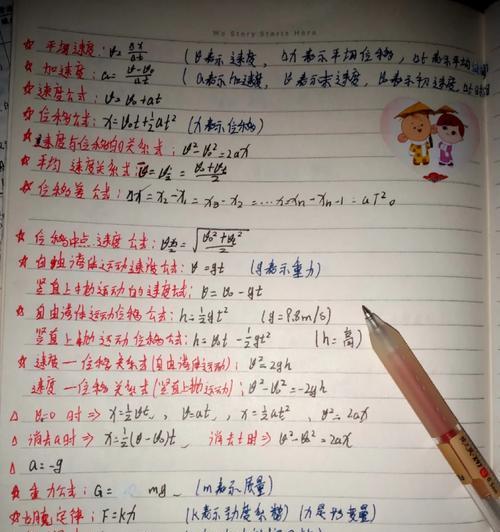 We Story Starts Here
☆ 平均速度: v=Δx/Δt (v表示速度, Δx表示平均位移, Δt表示平均
☆ 加速度: a=(v-v₀)/Δt (a表示加速度, v表示末速度, v₀表示初速度, Δt
☆ 速度公式: v=v₀+at
☆ 位移公式: x=v₀t+½at² (x表示位移)
☆ 速度与位移的关系式: v²-v₀²=2ax
☆ 平均速度关系式: v̄=v_{t/2}=(v₀+v_t)/2
☆ 位移差公式: Δx=x₂-x₁=x₃-x₂=…=xₙ-xₙ₋₁=aT²。
☆ 位移中点速度公式: v_{x/2}=√((v₀²+v_t²)/2)
☆ 自由落体运动速度公式: v=gt (g表示重力)
竖直上抛运动的速度公式: v=v₀-gt
☆ 自由落体运动位移公式: h=½gt² (g=9.8m/s)
竖直上抛运动位移公式: h=v₀t-½gt² (h=高)
☆ 速度一位移关系式(自由落体运动): v²=2gh
速度一位移关系式(竖直上抛运动): v²-v₀²=-2gh
△ v₀=0时⇒x=½vt, v=at, x=½at², v²=2ax
△ 消去a时⇒x=½(v-v₀)t, 消去t时⇒v²-v₀²=2ax
△ a=-g
☆ 重力公式: G=mg (m表示质量)
胡克定律: F=kx (k表示劲度系数) (x是形变量)